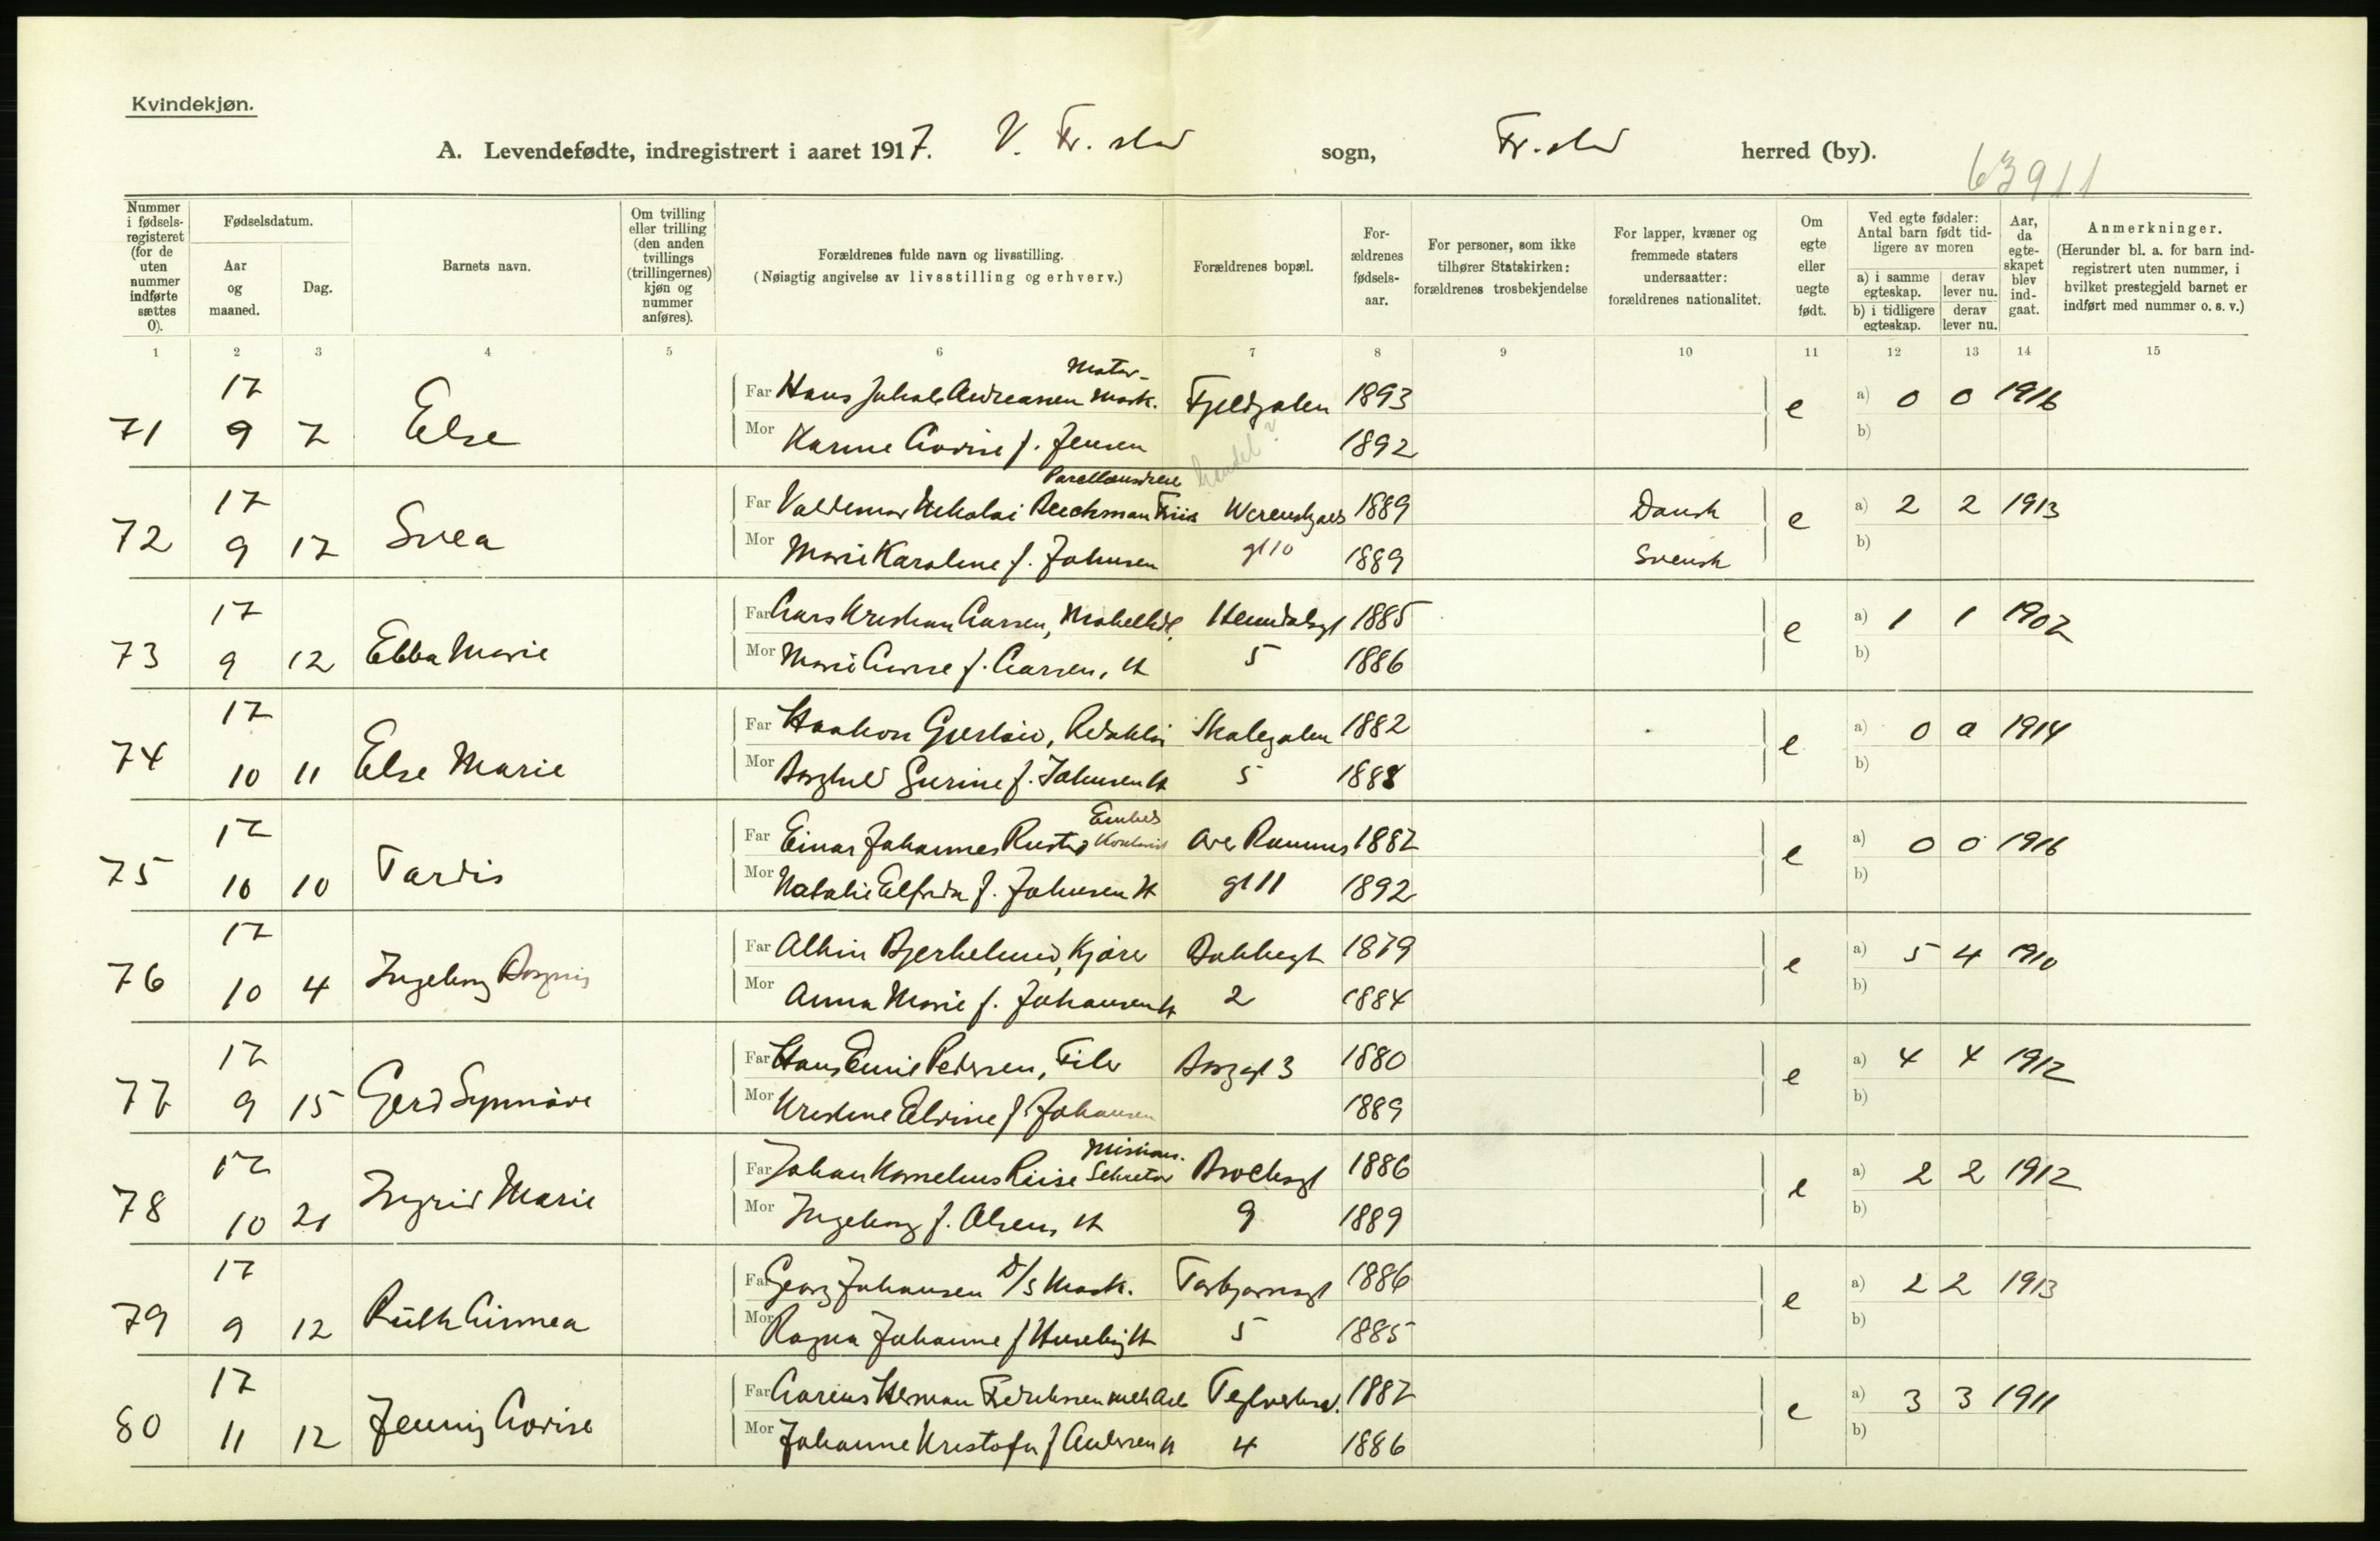 Kvindekjøn.
A. Levendefødte, indregistrert i aaret 1917. V. Fr.stad sogn, Fr.stad herred (by).
63911
Nummer i fødselsregisteret (for de uten nummer indførte sættes 0).
Fødselsdatum.
Aar og maaned.
Dag.
Barnets navn.
Om tvilling eller trilling (den anden tvillings (trillingernes) kjøn og nummer anføres).
Forældrenes fulde navn og livsstilling.
(Nøiagtig angivelse av livsstilling og erhverv.)
Forældrenes bopæl.
Forældrenes fødselsaar.
For personer, som ikke tilhører Statskirken: forældrenes trosbekjendelse
For lapper, kvæner og fremmede staters undersaatter: forældrenes nationalitet.
Om egte eller uegte født.
Ved egte fødsler: Antal barn født tidligere av moren
a) i samme egteskap. derav lever nu.
b) i tidligere egteskap. derav lever nu.
Aar, da egteskapet blev indgaat.
Anmerkninger.
(Herunder bl. a. for barn indregistrert uten nummer, i hvilket prestegjeld barnet er indført med nummer o. s. v.)
1 2 3 4 5 6 7 8 9 10 11 12 13 14 15
17 Motor-
Far Hans Jakob Andreassen mask. 1893 a) 0 0 1916
71 9 7 Else e
Mor Karine Lovise f. Jensen 1892 b)
handel?
17 Far Valdemar Nikolai 1889 Dansk a) 2 2 1913
72 9 17 Svea e
Mor Marie Karoline f. Johnsen gt 10 1889 Svensk b)
17 Far Lars Kristian Larsen, 1885 a) 1 1 1907
73 9 12 Ebba Marie e
Mor Marie Lovise f. Larsen, H 5 1886 b)
17 Far Haakon Gjerløw, Redaktør 1882 a) 0 0 1914
74 10 11 Else Marie e
Mor Borghild f. Johnsen H 5 1888 b)
17 Far Einar Johannes 1887 a) 0 0 1916
75 10 10 Tordis e
Mor Natalie Elfrida f. Johnsen H gt 11 1892 b)
17 Far Albin Bjerkelund, Kjører 1879 a) 5 4 1910
76 10 4 Ingeborg e
Mor Anna Marie f. Johansen H 2 1884 b)
17 Far Hans Emil Pedersen, Filer Borggt 3 1880 a) 4 4 1912
77 9 15 Gerd Synnøve e
Mor Kristine Elvine f. Johansen 1889 b)
17 Missions-
Far Johan Kornelius Riise Sekretær Brochsgt 1886 a) 2 2 1912
78 10 21 Ingrid Marie e
Mor Ingeborg f. Olsen, H 9 1889 b)
17 Far Georg Johansen D/S Mask. Torbjørnsgt 1886 a) 2 2 1913
79 9 12 Ruth Linnea e
Mor Ragna Johanne f Huseby H 5 1885 b)
17 Far Herman Fredriksen 1887 a) 3 3 1911
80 11 12 Jenny Lovise e
Mor Johanne Kristofa f 4 1886 b)